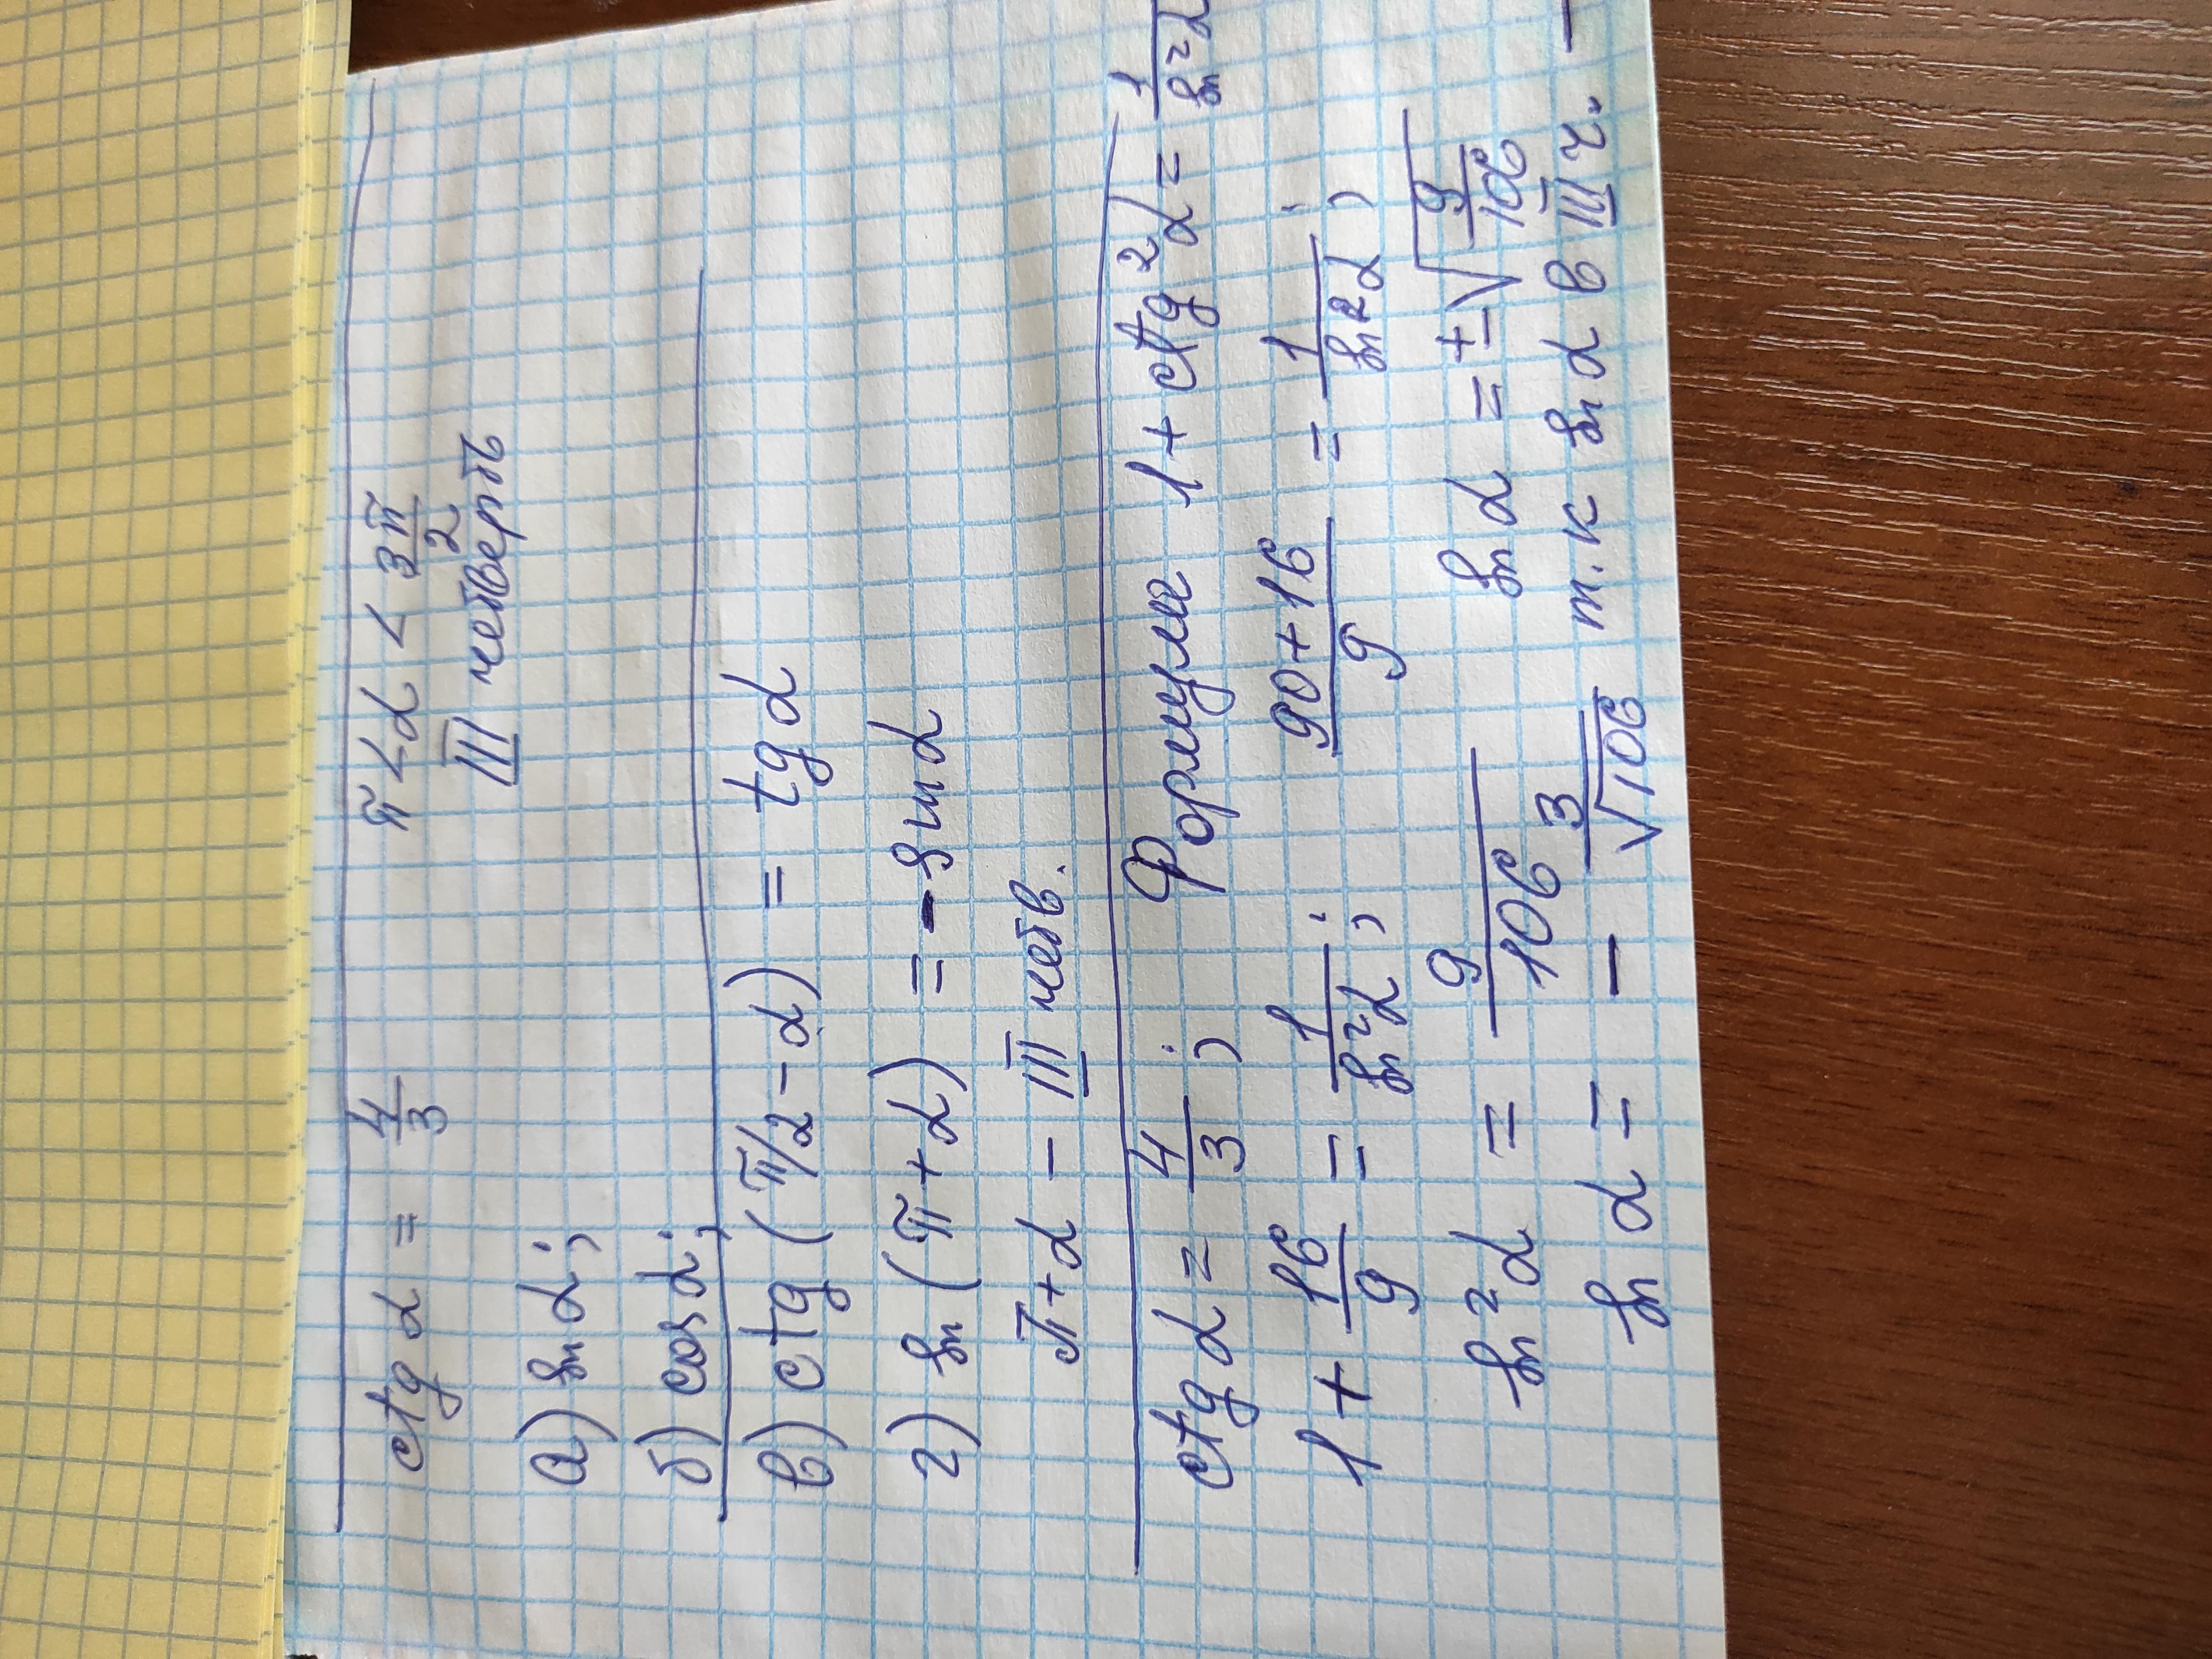 ctg α = 4/3   π < α < 3π/2
III четверть
а) sin α;
б) cos α;
в) ctg (π/2 - α) = tg α
г) sin (π + α) = - sin α
π + α - III четв.
ctg α = 4/3; Формула 1 + ctg²α = 1/sin²α
1 + 16/9 = 1/sin²α; 90+16/9 = 1/sin²α;
sin²α = 9/106   sin α = ±√9/106
sin α = - 3/√106   т.к sin α в III ч. -